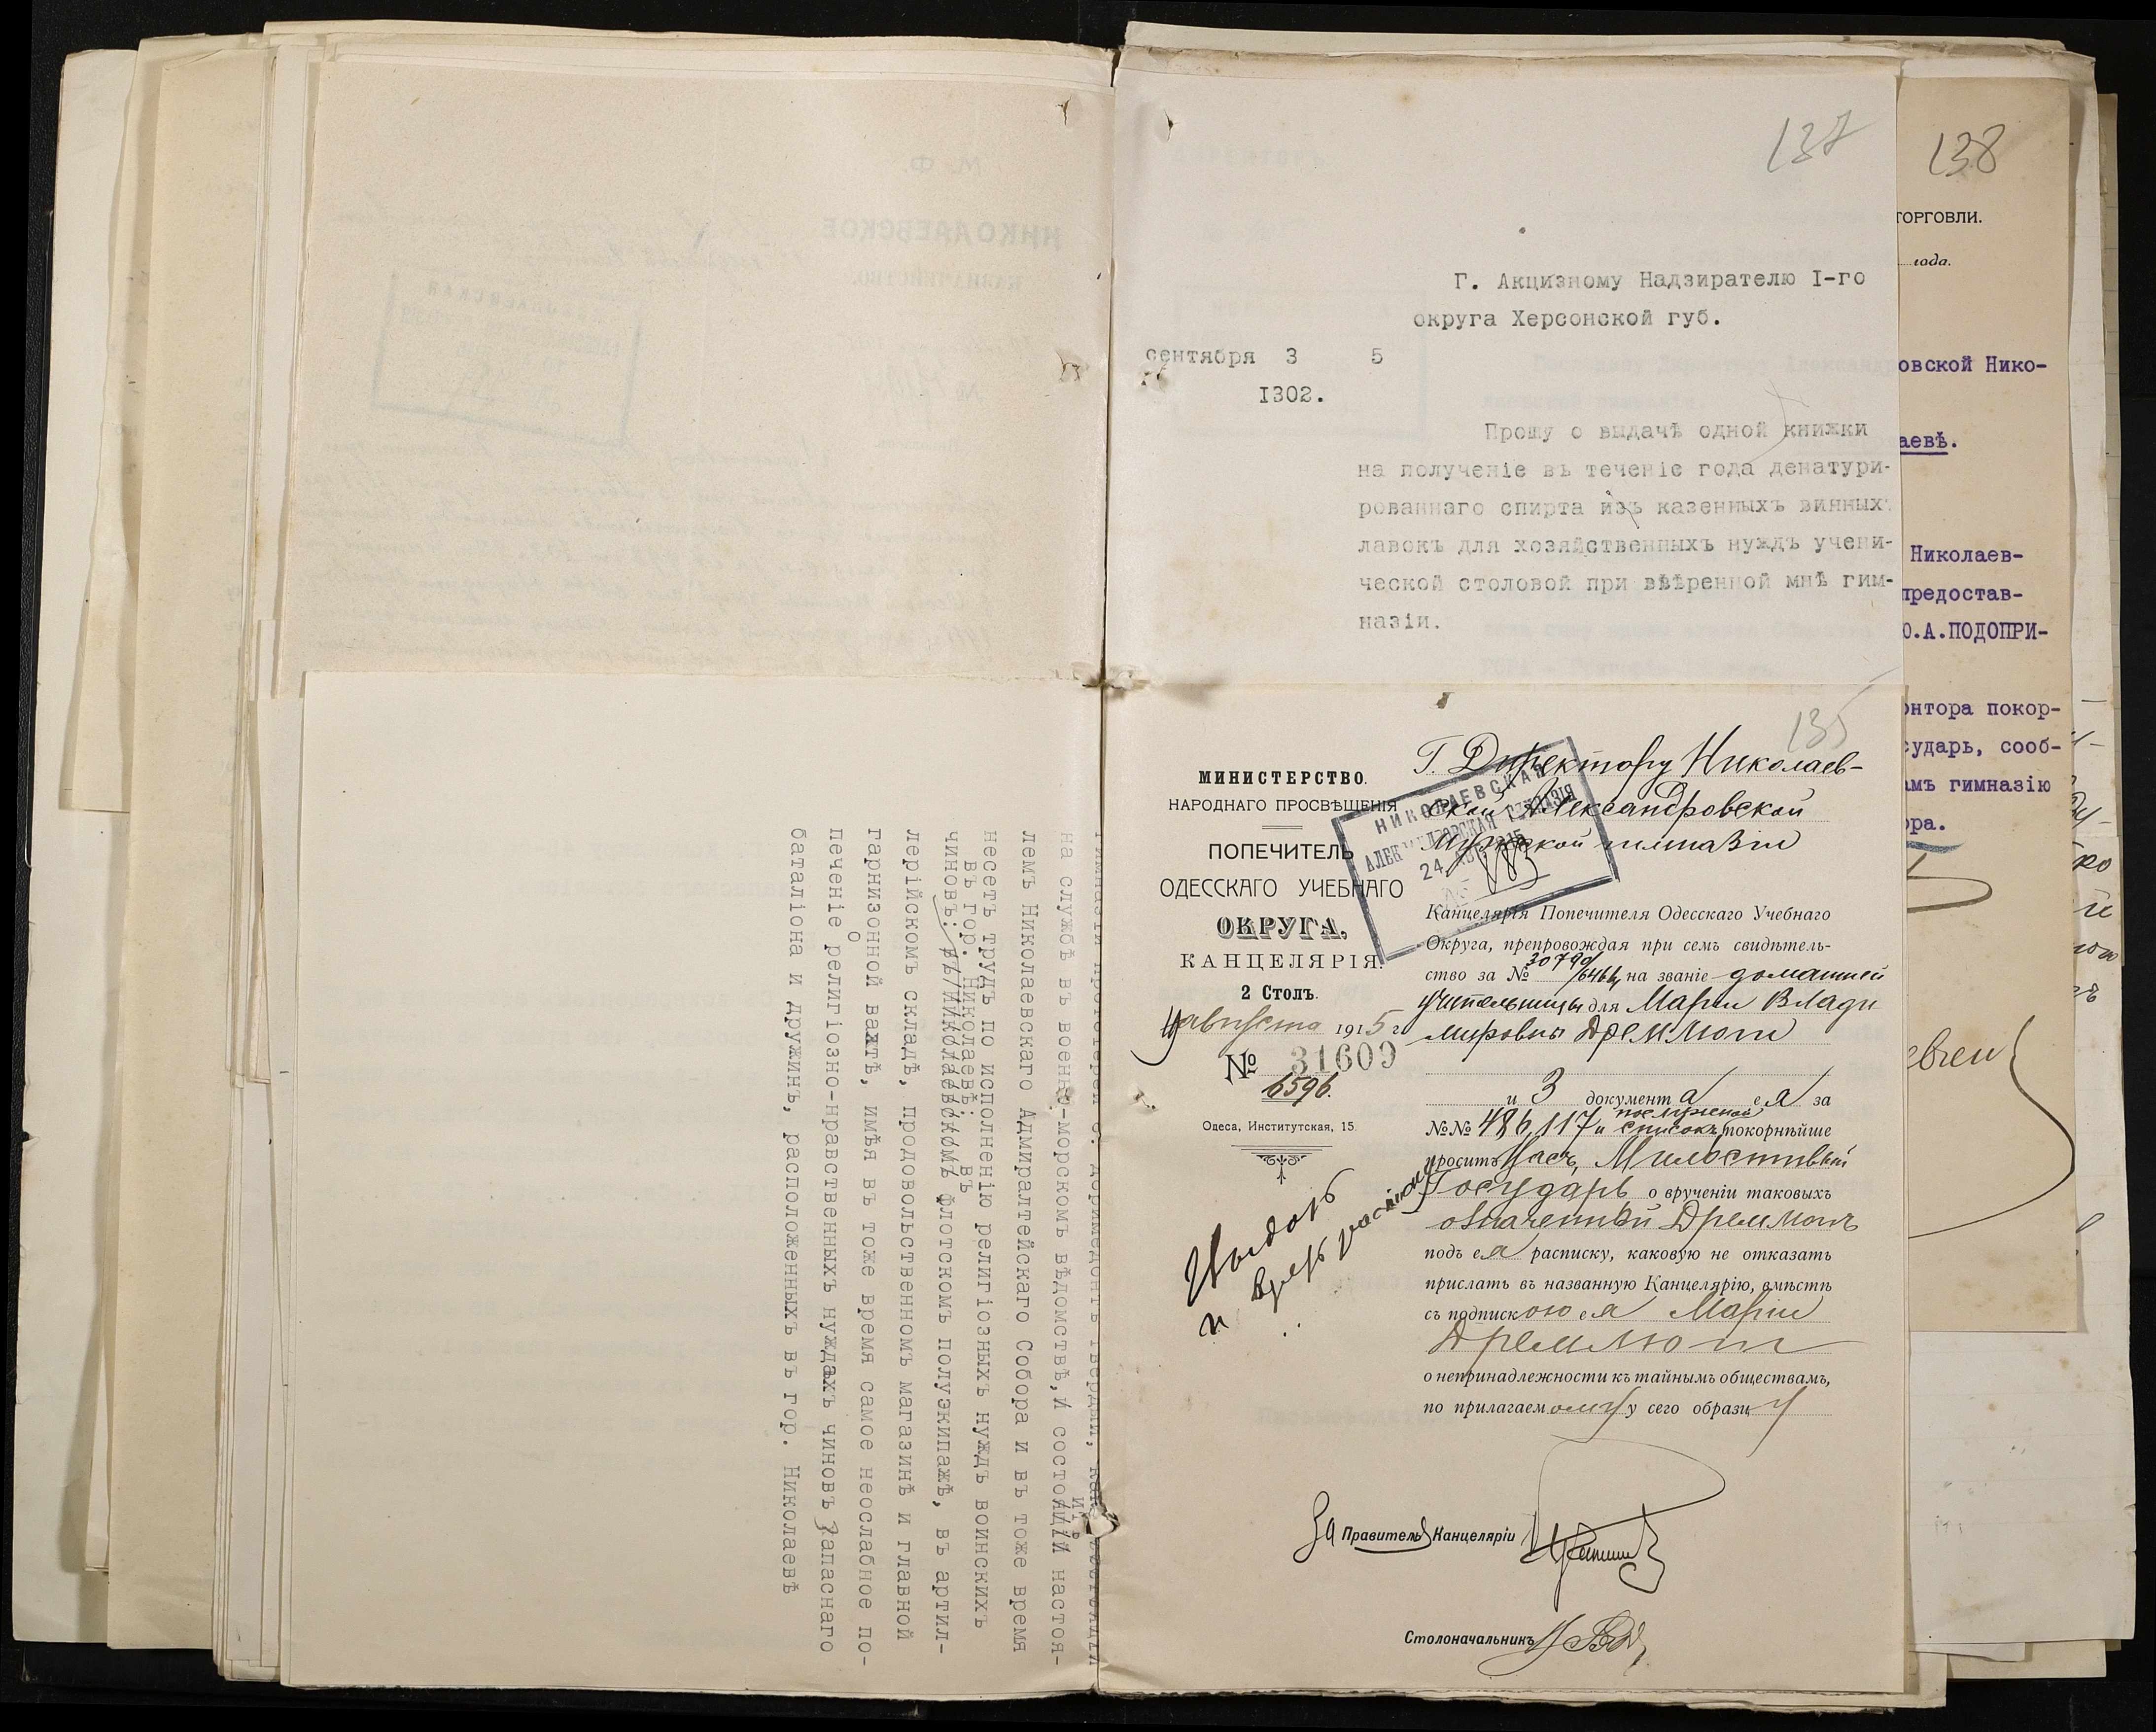 137
Г. Акцизному Надзирателю I-го
округа Херсонской губ.
сентября 3 5
I302.
Прошу о выдачѣ одной книжки
на полученіе въ теченіе года денатури-
рованнаго спирта изъ казенныхъ винныхъ
лавокъ для хозяйственныхъ нуждъ учени-
ческой столовой при ввѣренной мнѣ гим-
назіи.
135
МИНИСТЕРСТВО.
НАРОДНАГО ПРОСВѢЩЕНІЯ
ПОПЕЧИТЕЛЬ
ОДЕССКАГО УЧЕБНАГО
ОКРУГА.
КАНЦЕЛЯРІЯ.
2 Столъ.
августа 1915 г.
№ 31609
6596.
Одеса, Институтская, 15.
Выдать
и взять расписку
НИКОЛАЕВСКАЯ
АЛЕКСАНДРОВСКАЯ ГИМНАЗІЯ
24 1915
№
Г. Директору Николаев-
ской Александровской
Мужской гимназіи
Канцелярія Попечителя Одесскаго Учебнаго
Округа, препровождая при семъ свидѣтель-
ство за № 30790/6466, на званіе домашней
учительницы для Маріи Влади
мировны Дреммот
и 3 документа ея за
№№ 486, 117 и послужной списокъ покорнѣйше
проситъ Васъ, Милостивый
Государь о врученіи таковыхъ
означенной Дреммотъ
подъ ея расписку, каковую не отказать
прислать въ названную Канцелярію, вмѣстѣ
съ подпискою ея Маріи
Дреммот
о непринадлежности къ тайнымъ обществамъ,
по прилагаемому у сего образцу
За Правитель Канцеляріи
Столоначальникъ
на службѣ въ военно-морскомъ вѣдомствѣ, и состоитъ настоя-
лемъ Николаевскаго Адмиралтейскаго Собора и въ тоже время
несетъ трудъ по исполненію религіозныхъ нуждъ воинскихъ
въ гор. Николаевѣ: въ
чиновъ: въ Николаевскомъ флотскомъ полуэкипажѣ, въ артил-
лерійскомъ складѣ, продовольственномъ магазинѣ и главной
гарнизонной вахтѣ, имѣя въ тоже время самое неослабное по-
о
печеніе религіозно-нравственныхъ нуждахъ чиновъ Запаснаго
баталіона и дружинъ, расположенныхъ въ гор. Николаевѣ
138
ТОРГОВЛИ.
года.
овской Нико-
аевѣ.
Николаев-
предостав-
Ю.А.ПОДОПРИ-
онтора покор-
сударь, сооб-
амъ гимназію
ора.